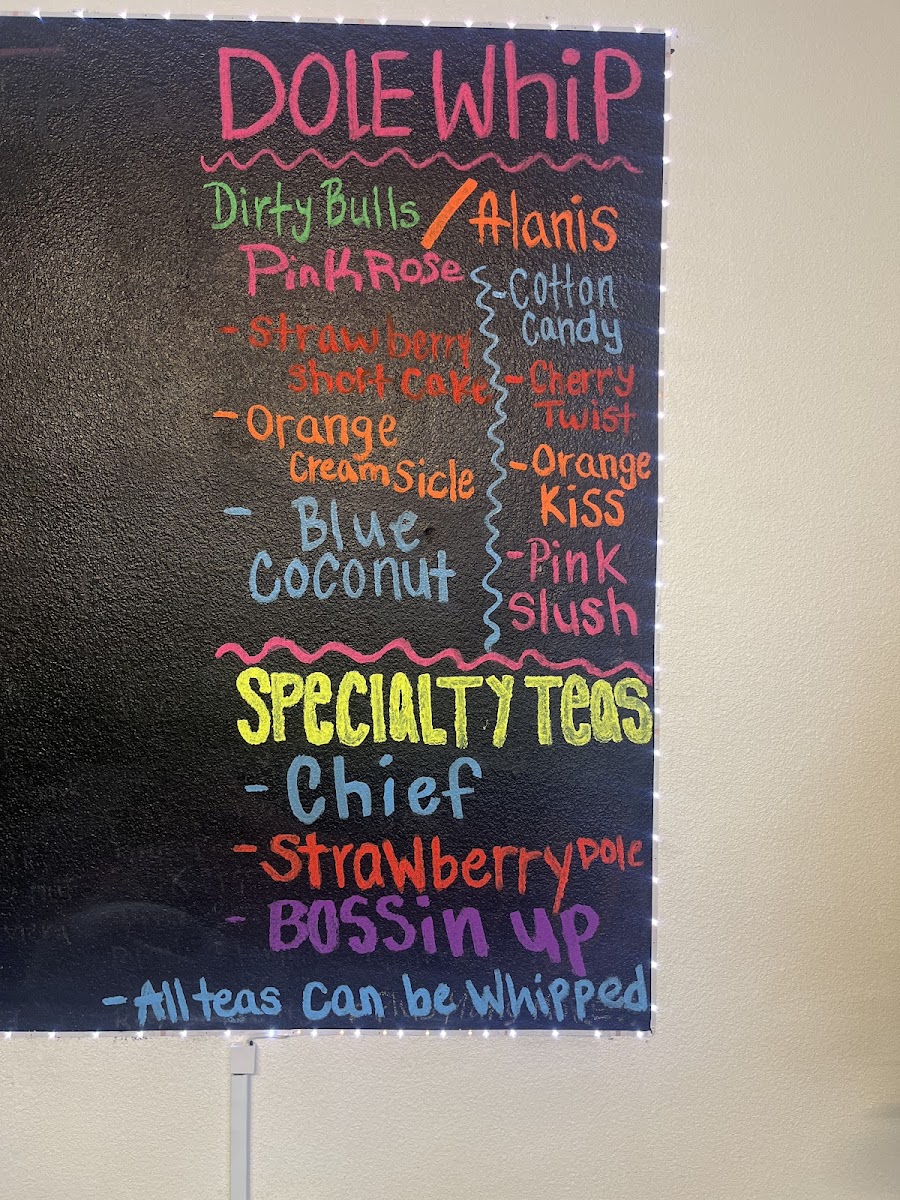 DOLE WHIP
Dirty Bulls / Alanis
Pink Rose
- Strawberry
Short Cake
- Orange
Creamsicle
- Blue
Coconut
- Cotton
Candy
- Cherry
Twist
- Orange
Kiss
- Pink
Slush
SPECIALTY TEAS
- Chief
- Strawberry Dole
- Bossin up
- All teas can be whipped